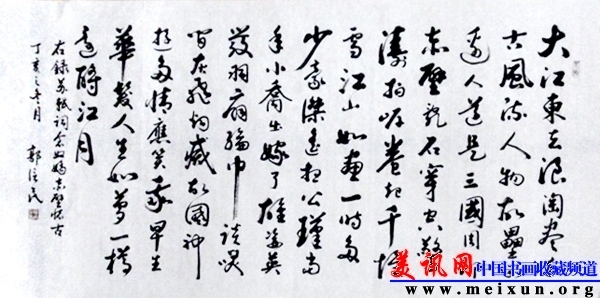 大江東去浪淘尽千
古風流人物故壘西
邊人道是三國周郎
赤壁亂石穿空驚
濤拍岸卷起千堆
雪江山如畫一時多
少豪傑遙想公瑾當
年小喬出嫁了雄姿英
發羽扇綸巾談笑
間灰飛烟滅故國神
遊多情應笑我早生
華髮人生如夢一樽
還酹江月
右錄苏軾詞念奴嬌赤壁怀古
丁亥之冬月 郭信民
美讯网 中国书画收藏频道
www.meixun.org